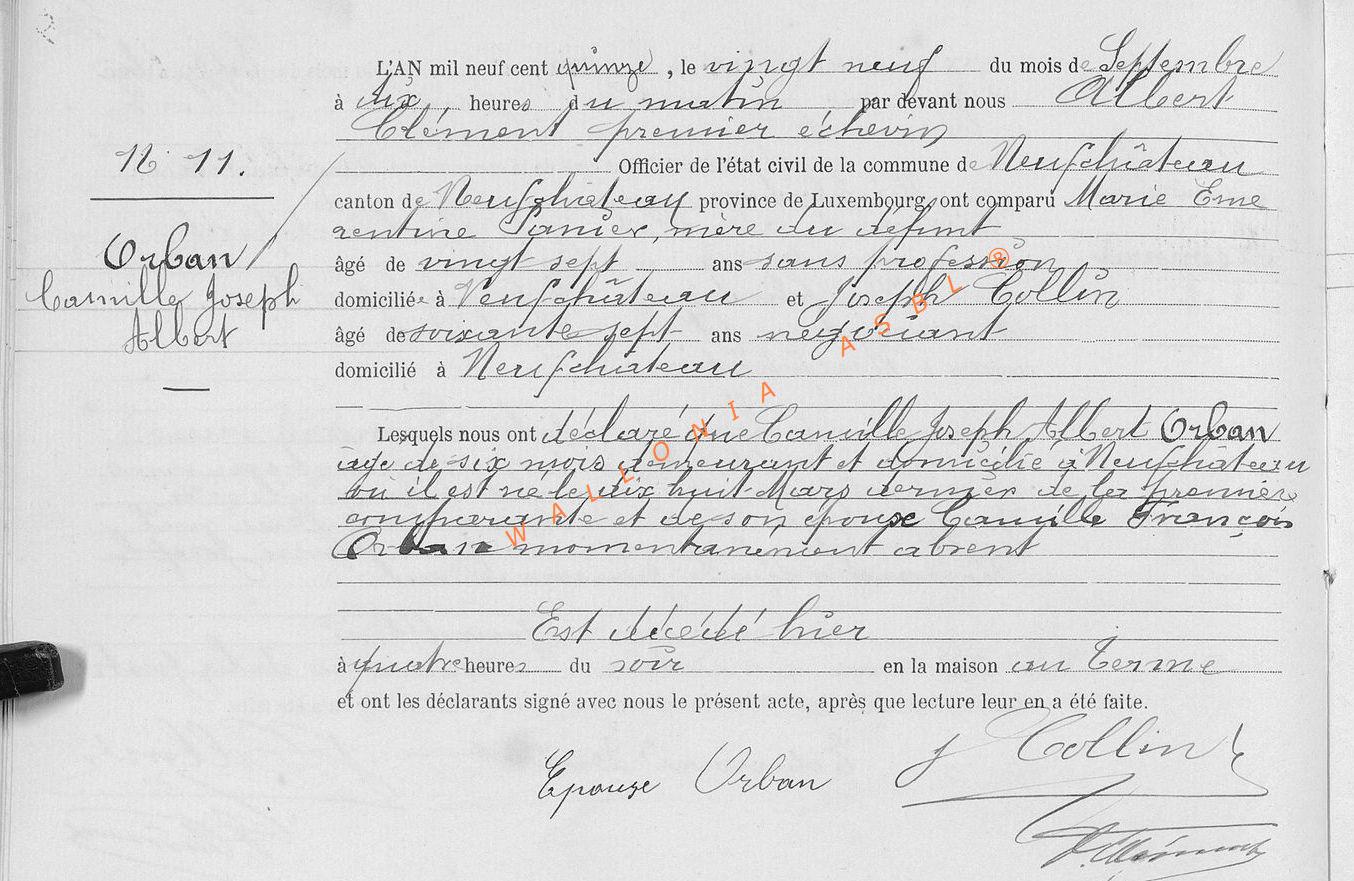 L'AN mil neuf cent quinze, le vingt neuf du mois de Septembre
à dix, heures du matin par devant nous Albert
Clément premier échevin
N. 11.
Officier de l'état civil de la commune de Neufchâteau
canton de Neufchateau province de Luxembourg ont comparu Marie Eme
rentine Panier, mère du défunt
Orban
Camille Joseph
Albert
âgé de vingt sept ans sans profession
domiciliée à Neufchâteau et Joseph Collin
âgé de soixante sept ans négociant
domicilié à Neufchateau
Lesquels nous ont déclaré que Camille Joseph Albert Orban
âgé de six mois demeurant et domicilié à Neufchâteau
où il est né le dix huit Mars dernier de la première
comparante et de son époux Camille François
Orban momentanément absent
Est décédé hier
à quatre heures du soir en la maison au Terme
et ont les déclarants signé avec nous le présent acte, après que lecture leur en a été faite.
Epouse Orban
J Collin
A. Clément
WALLONIA ASBL ®